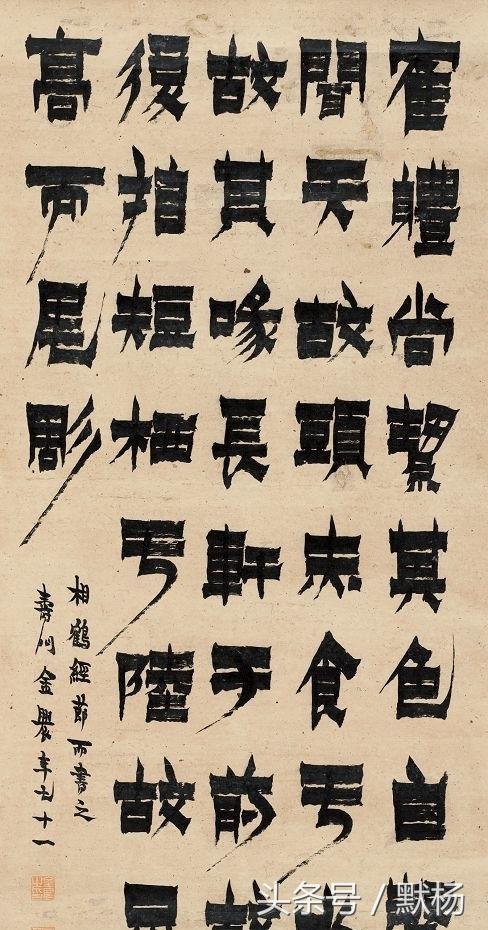 寉軆尚絜其色白
聞天故頭赤食亏
故其喙長軒于前
後指短栖亏陸故
高而尾彫
相鶴經節而書之
壽門金農年七十一
头条号 / 默杨